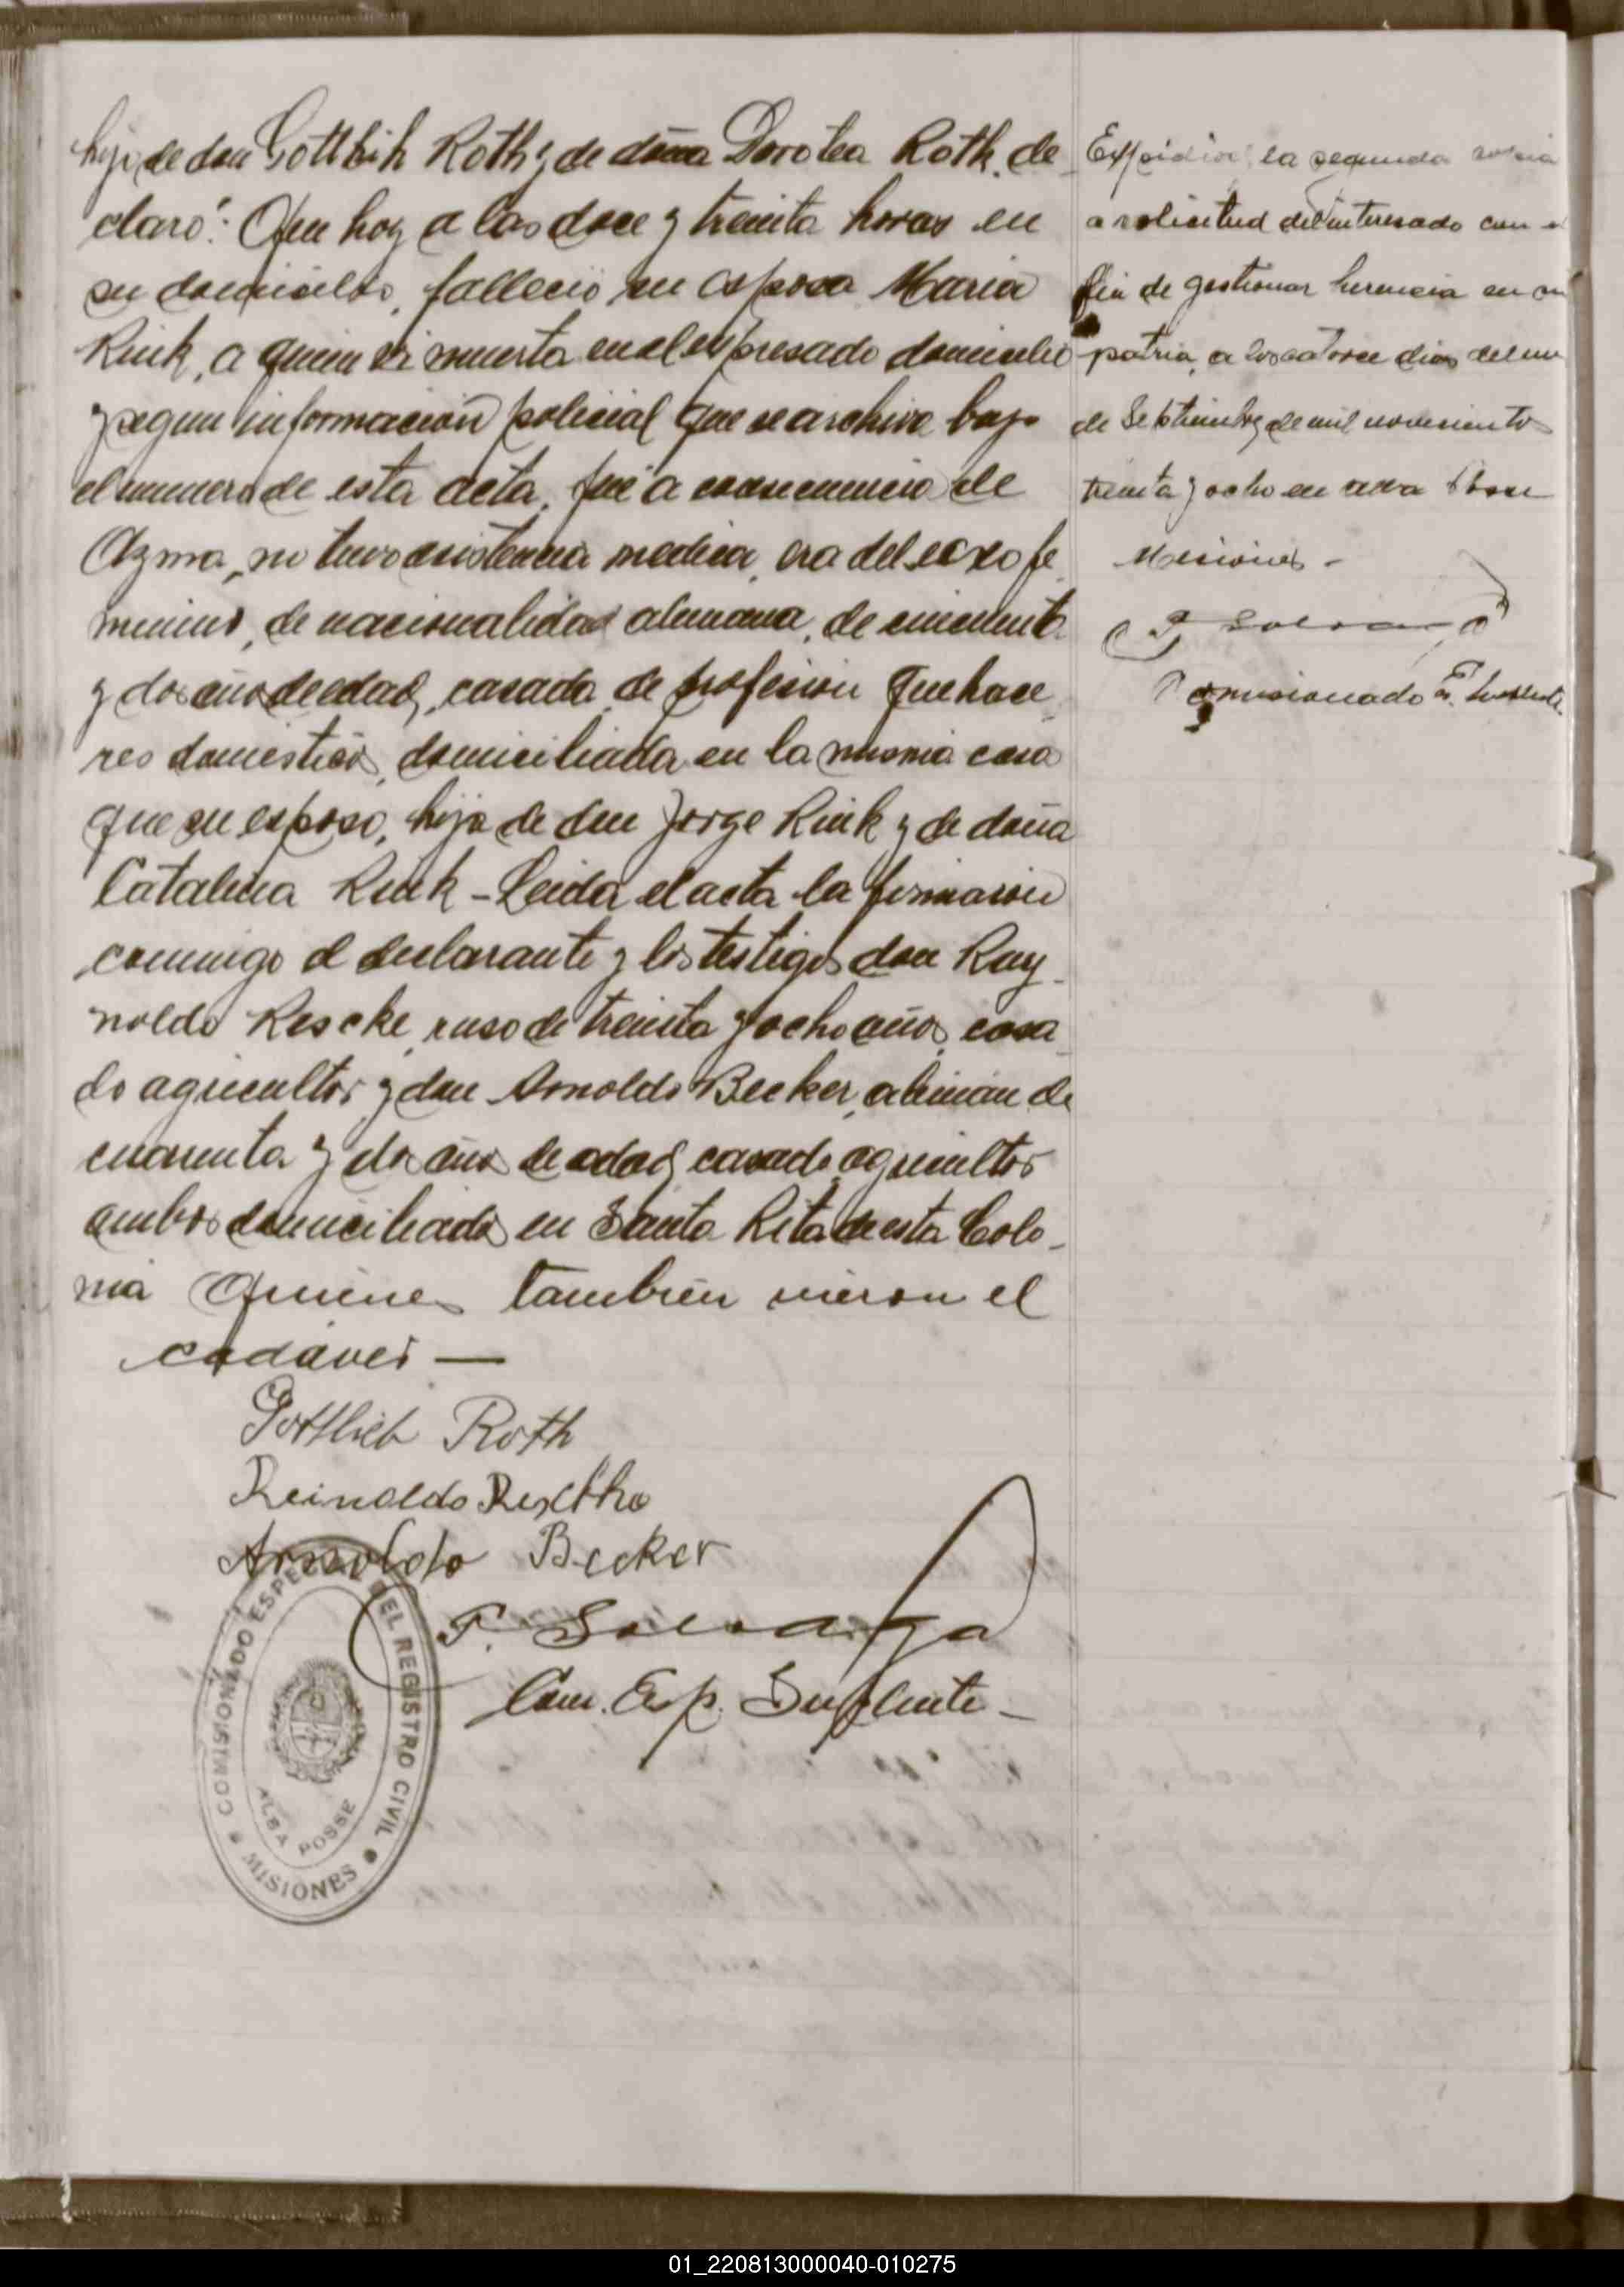 hijo de don Gottlieb Roth y de doña Dorotea Roth, de-
claró: Que hoy a las doce y treinta horas en
su domicilio, falleció su esposa Maria
Rink, a quien vi muerta en el expresado domicilio
y segun información policial que se archiva bajo
el numero de esta acta, fué a consecuencia de
Azma, no tuvo asistencia medica, era del sexo fe
menino, de nacionalidad alemana, de cincuenta
y dos años de edad, casada, de profesion quehace
res domesticos, domiciliada en la misma casa
que su esposo, hija de don Jorge Rink y de doña
Catalina Rink - Leida el acta la firmaron
conmigo el declarante y los testigos don Ray-
noldo Rescke, ruso de treinta y ocho años, casa
do agricultor y don Arnoldo Becker, alemán de
cuarenta y dos años de edad, casado agricultor
ambos domiciliados en Santa Rita de esta Colo-
nia Quienes tambien vieron el
cadáver —
Gottlieb Roth
Reinoldo
Arnoldo Becker
Com. Esp. Suplente -
COMISIONADO ESPECIAL DEL REGISTRO CIVIL
ALBA POSSE
MISIONES
Expidióse la segunda copia
a solicitud del interesado con el
fin de gestionar herencia en su
patria, a los catorce dias del mes
de Septiembre de mil novecientos
treinta y ocho en Alba Posse
Misiones -
Comisionado Suplente